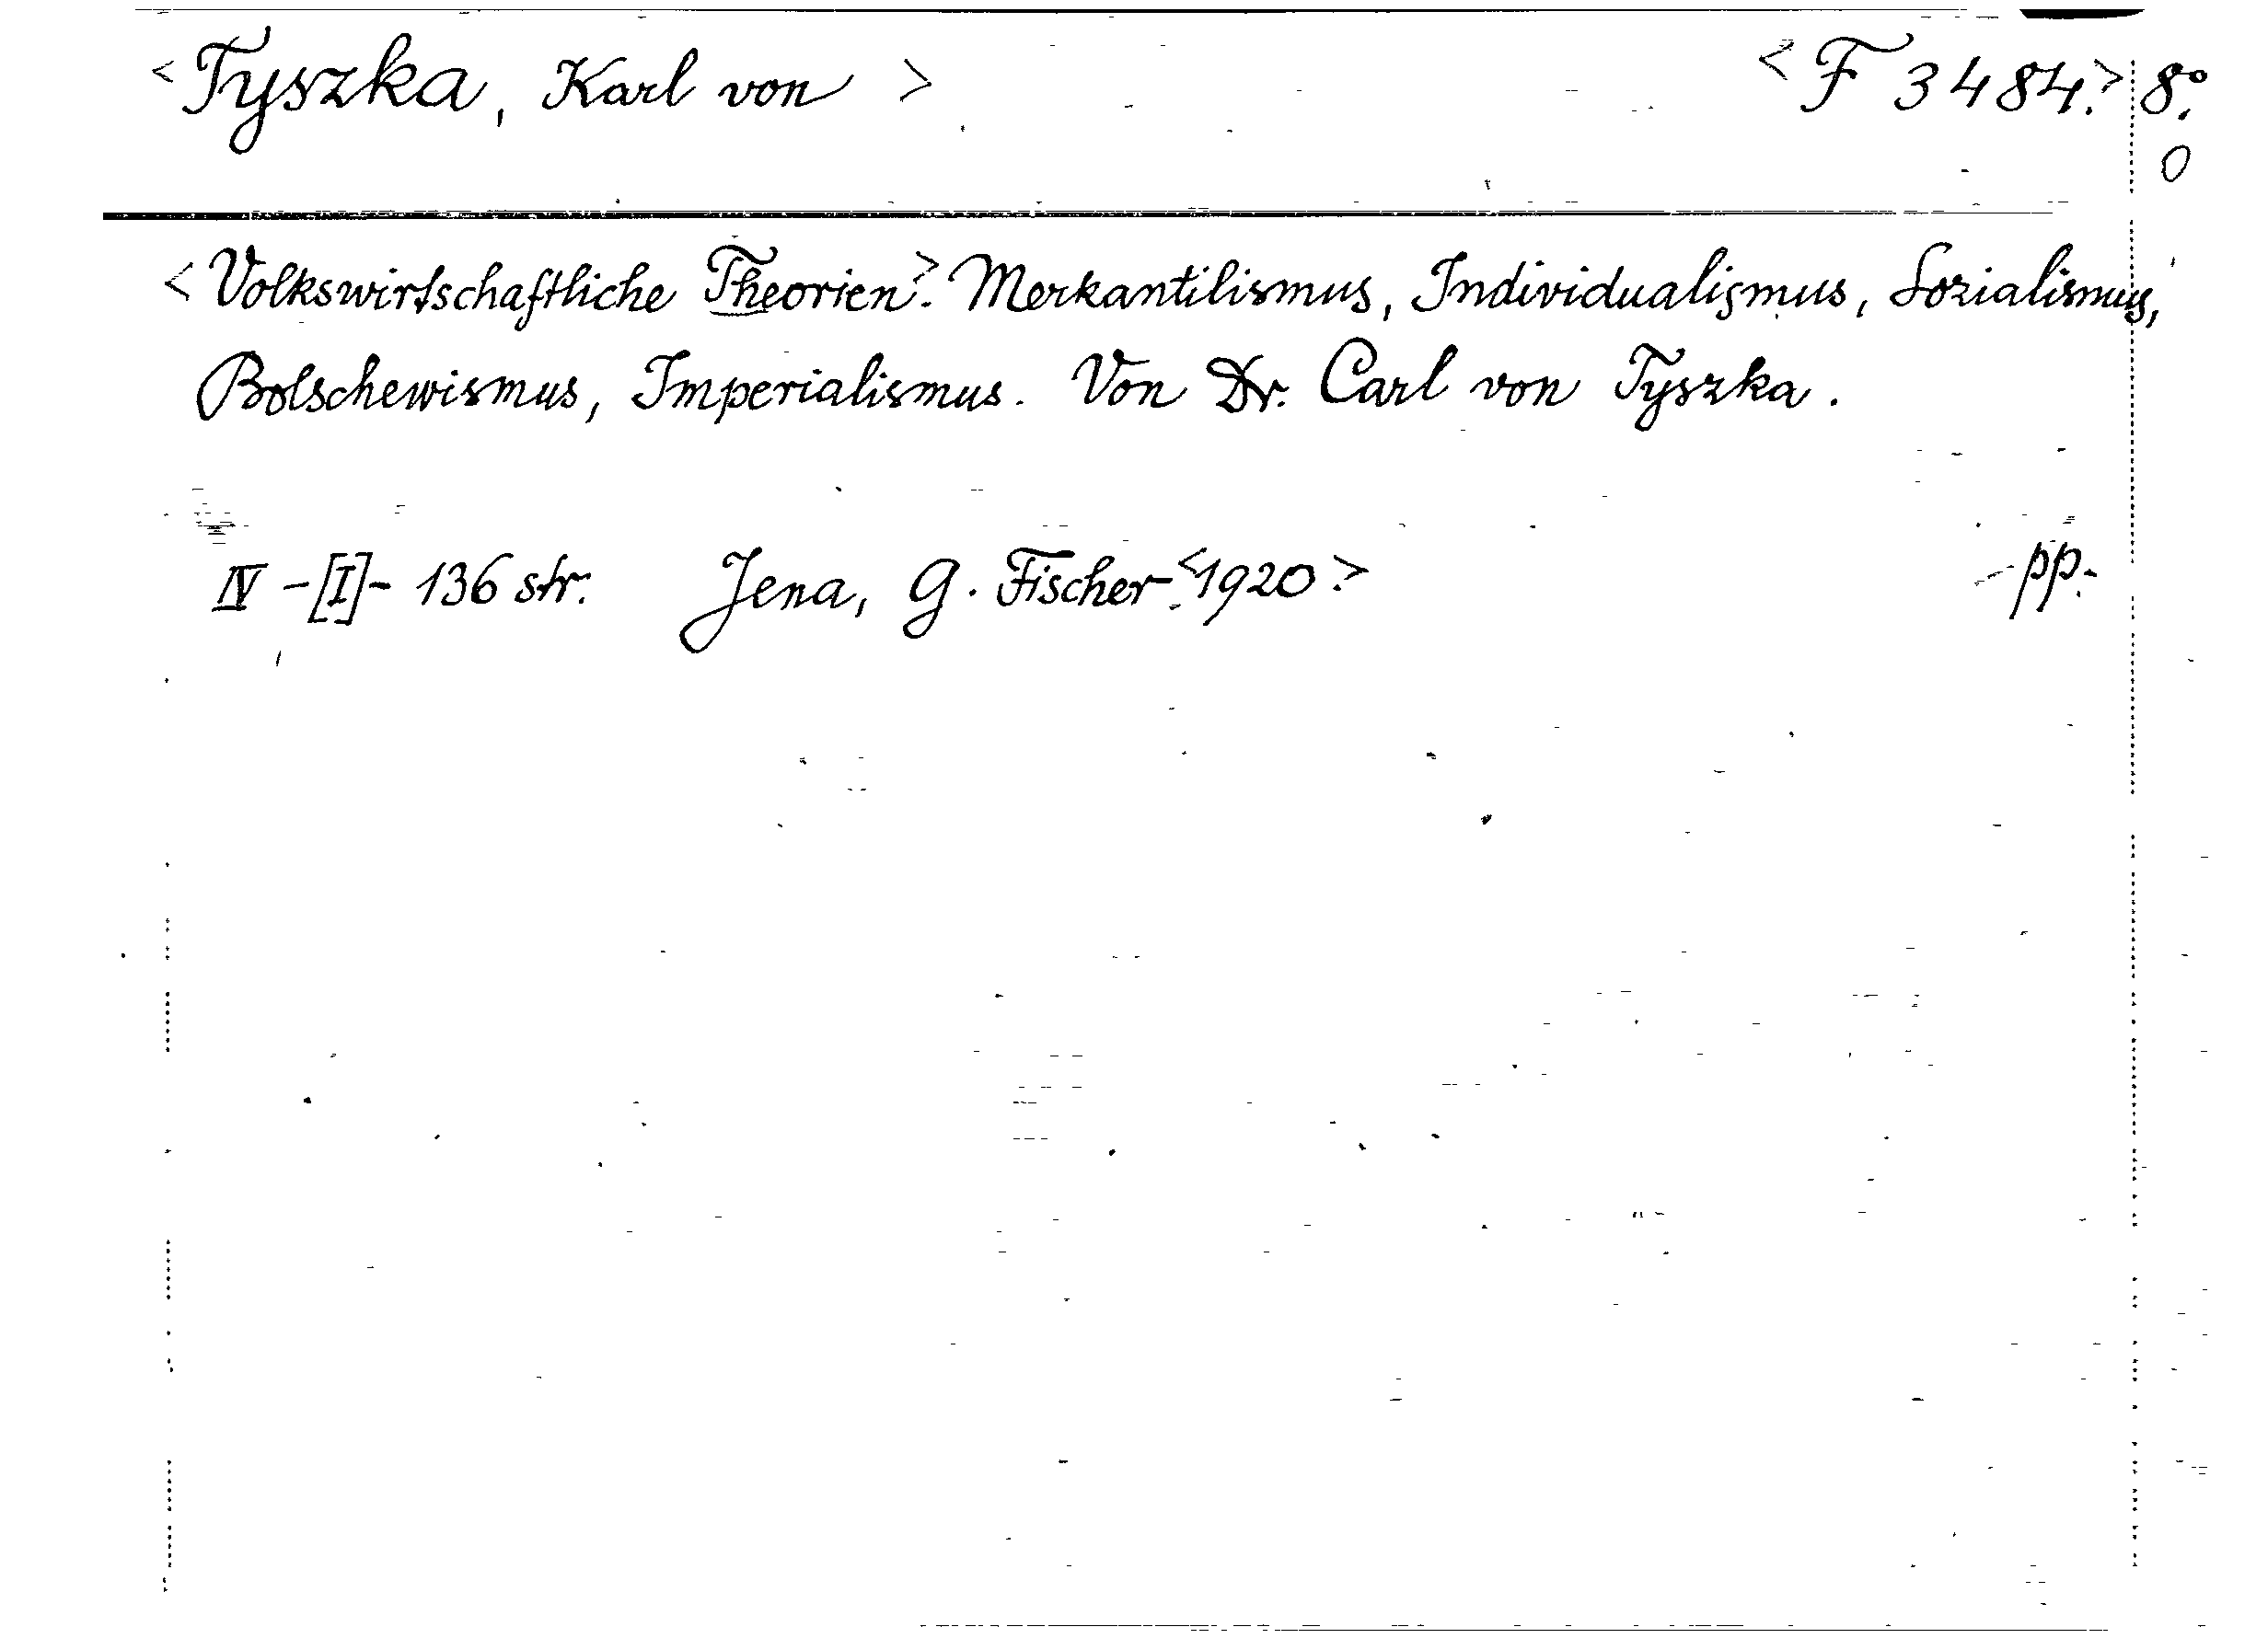 <Tyszka, Karl von> <F 3484.> 8°.
0
<Volkswirtschaftliche Theorien.> Merkantilismus, Individualismus, Sozialismus,
Bolschewismus, Imperialismus. Von Dr. Carl von Tyszka.
IV-[I]- 136 str. Jena, G. Fischer. <1920.> pp.